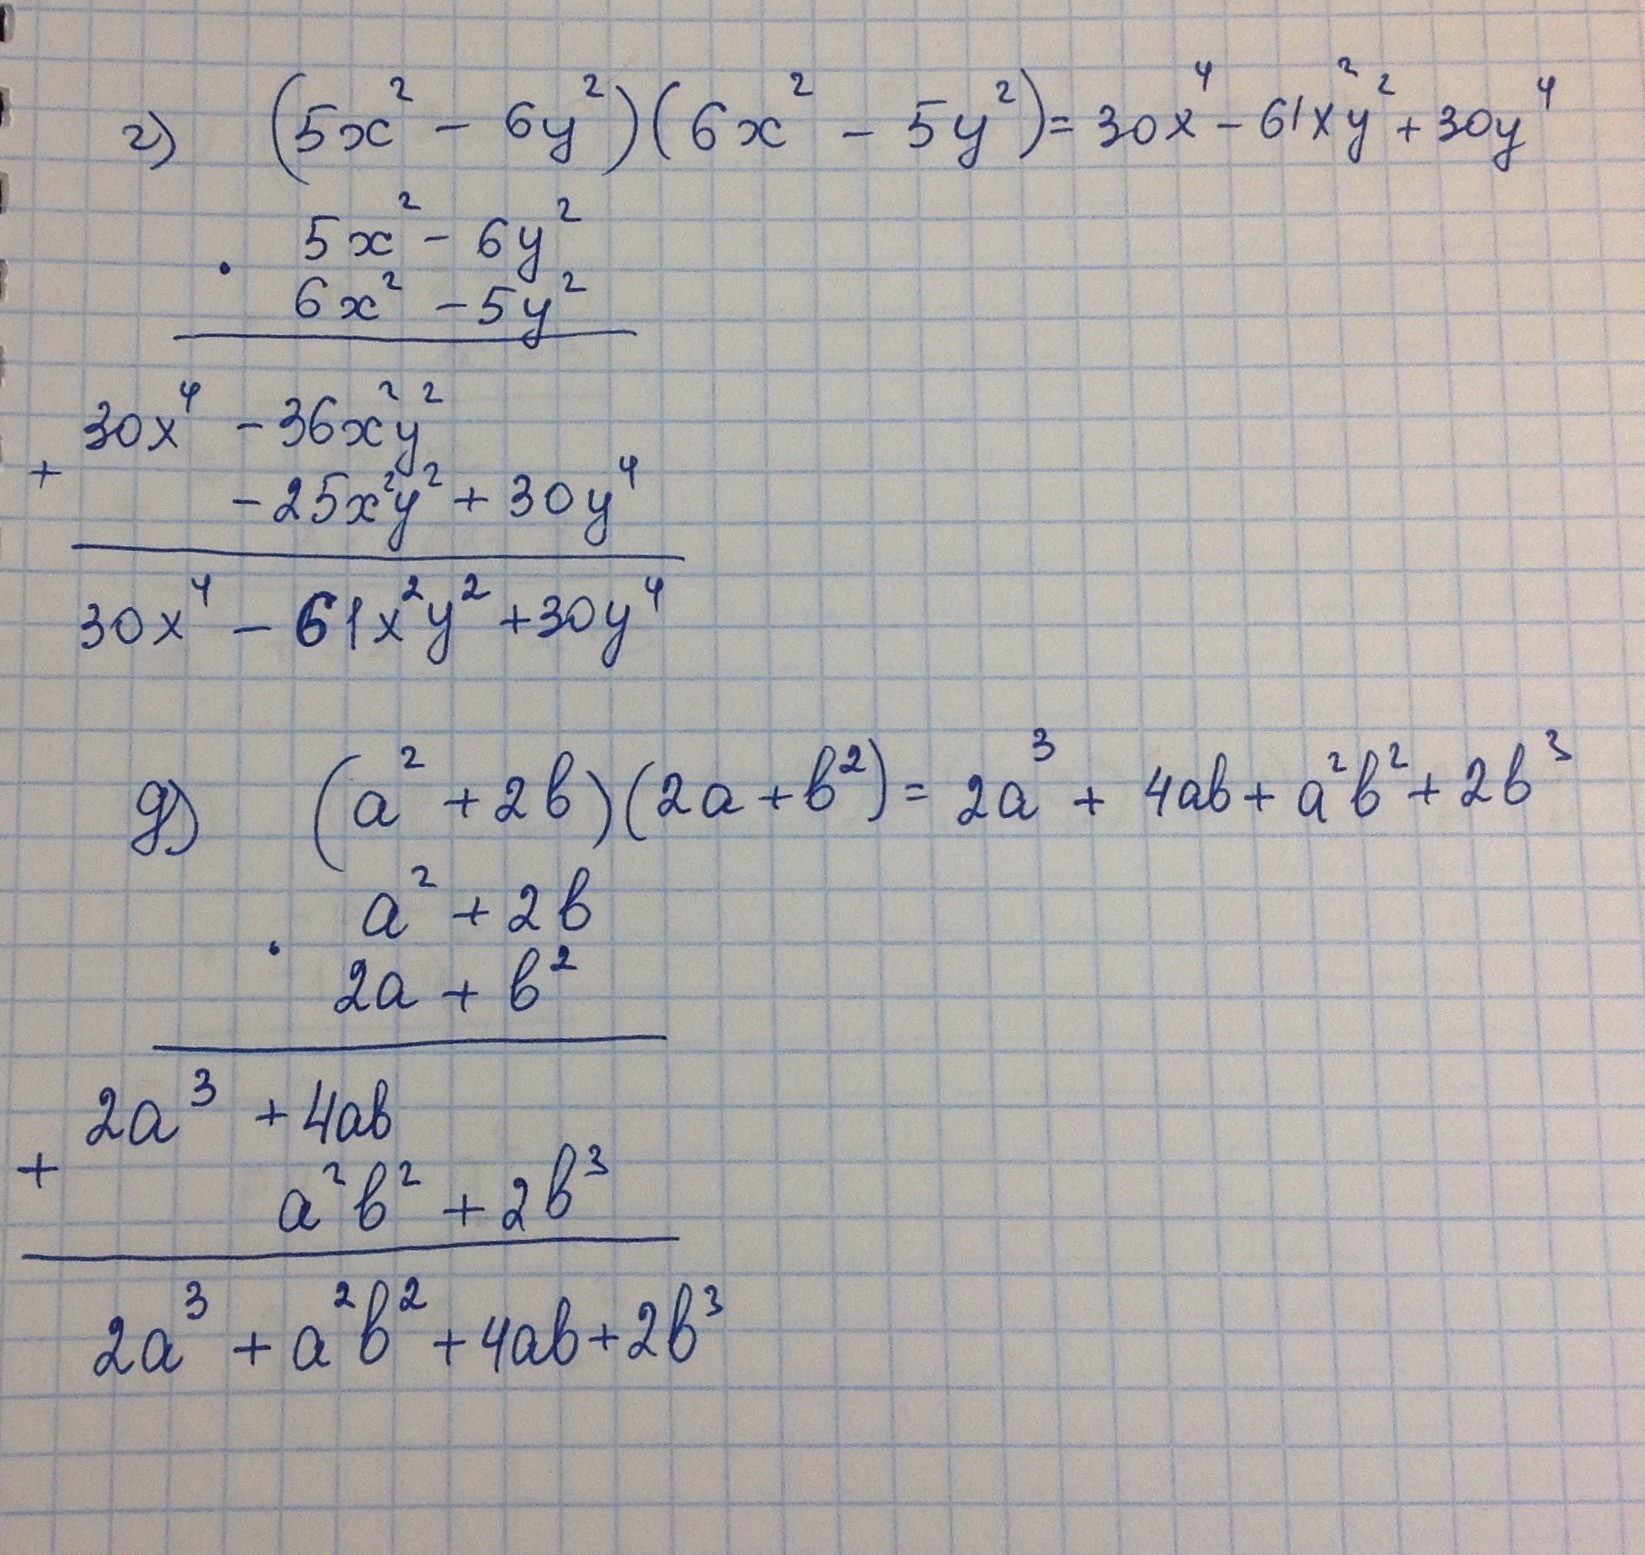 г) (5x² - 6y²)(6x² - 5y²) = 30x⁴ - 61x²y² + 30y⁴
5x² - 6y²
·
6x² - 5y²
30x⁴ - 36x²y²
+
- 25x²y² + 30y⁴
30x⁴ - 61x²y² + 30y⁴
д) (a² + 2b)(2a + b²) = 2a³ + 4ab + a²b² + 2b³
a² + 2b
·
2a + b²
2a³ + 4ab
+
a²b² + 2b³
2a³ + a²b² + 4ab + 2b³